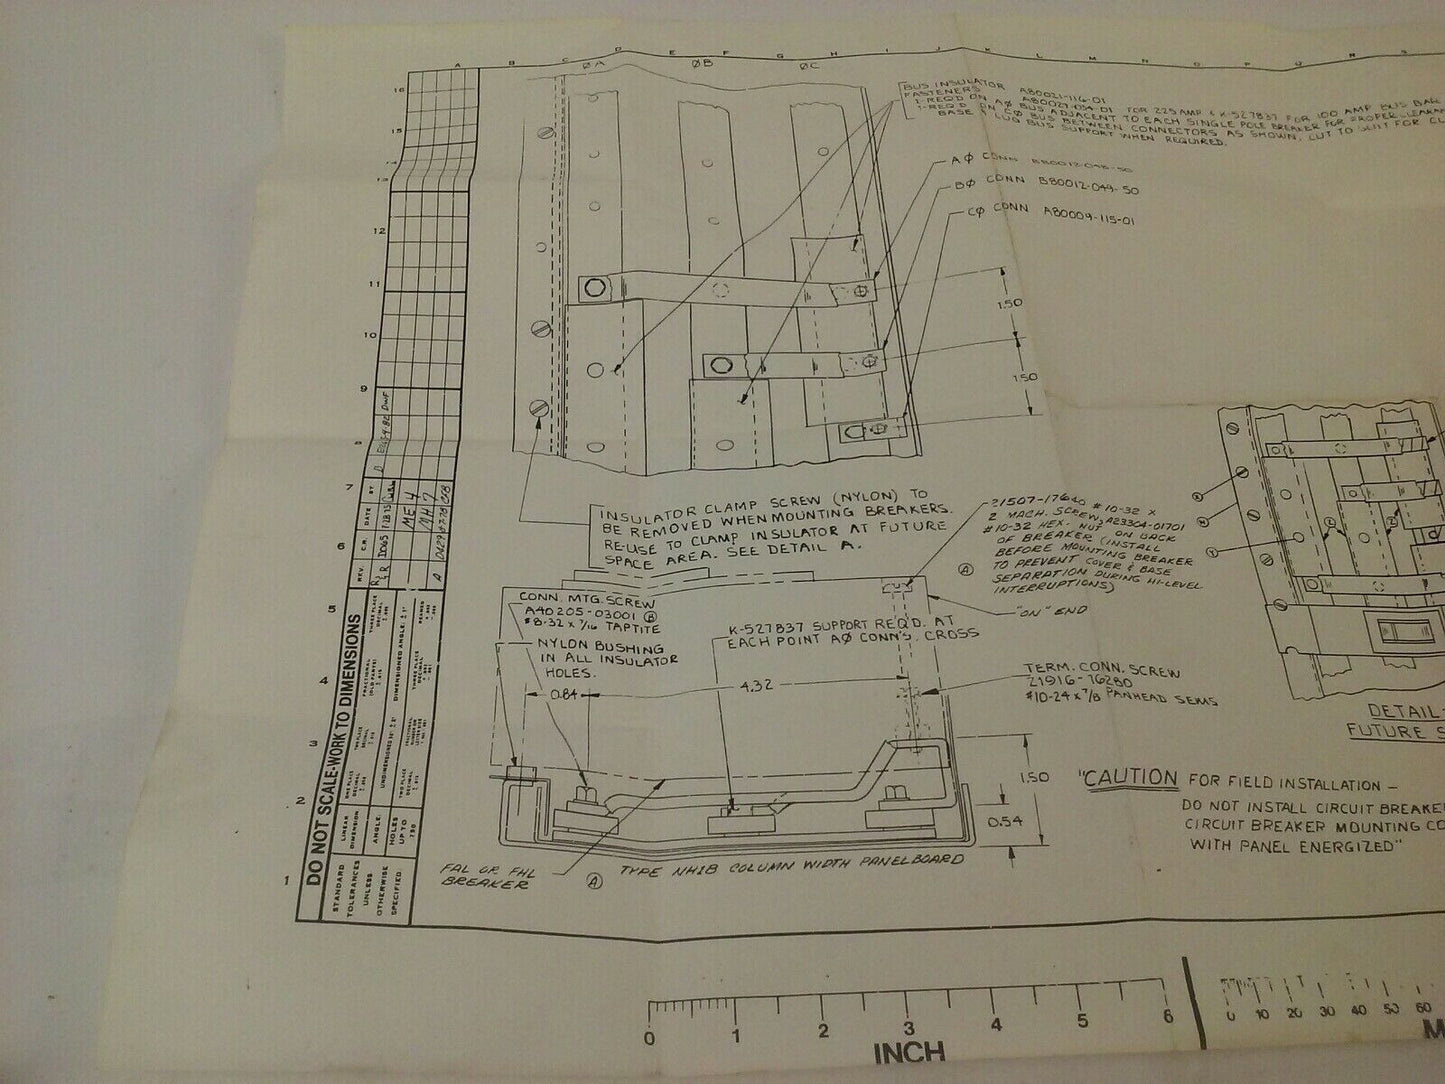 A B C D E F G H I J K L M N O P Q R S
ØA ØB ØC
BUS INSULATOR A80021-116-01
FASTENERS A80027-034-01 FOR 225 AMP & K-527837 FOR 100 AMP BUS BAR
1-REQ'D ON AØ BUS ADJACENT TO EACH SINGLE POLE BREAKER FOR PROPER LEAKAGE
1-REQ'D ON CØ BUS BETWEEN CONNECTORS AS SHOWN, CUT TO SUIT FOR
BASE & LUG BUS SUPPORT WHEN REQUIRED.
AØ CONN B80012-048-50
BØ CONN B80012-049-50
CØ CONN A80009-115-01
1.50
1.50
INSULATOR CLAMP SCREW (NYLON) TO
BE REMOVED WHEN MOUNTING BREAKERS.
RE-USE TO CLAMP INSULATOR AT FUTURE
SPACE AREA. SEE DETAIL A.
21507-17640 #10-32 X
2 MACH. SCREW, A23304-01701
#10-32 HEX. NUT ON BACK
OF BREAKER (INSTALL
BEFORE MOUNTING BREAKER
TO PREVENT COVER & BASE
SEPARATION DURING HI-LEVEL
INTERRUPTIONS)
A
"ON" END
CONN. MTG. SCREW
A40205-03001 B
#8-32 x 7/16 TAPTITE
K-527837 SUPPORT REQ'D. AT
EACH POINT AØ CONN'S. CROSS
NYLON BUSHING
IN ALL INSULATOR
HOLES.
TERM. CONN. SCREW
21916-16280
#10-24 x 7/8 PANHEAD SEMS
0.84 4.32
1.50
0.54
FAL OR FHL
BREAKER
A TYPE NH1B COLUMN WIDTH PANELBOARD
DETAIL
FUTURE S
"CAUTION FOR FIELD INSTALLATION -
DO NOT INSTALL CIRCUIT BREAKER
CIRCUIT BREAKER MOUNTING CO
WITH PANEL ENERGIZED"
16
15
14
13
12
11
10
9
8
7
6
5
4
3
2
1
REV. C.R. DATE BY
DO NOT SCALE-WORK TO DIMENSIONS
STANDARD
TOLERANCES
UNLESS
OTHERWISE
SPECIFIED
LINEAR
DIMENSION
ANGLE
HOLES
UP TO
.750
0 1 2 3 4 5 6
INCH
0 10 20 30 40 50 60
M